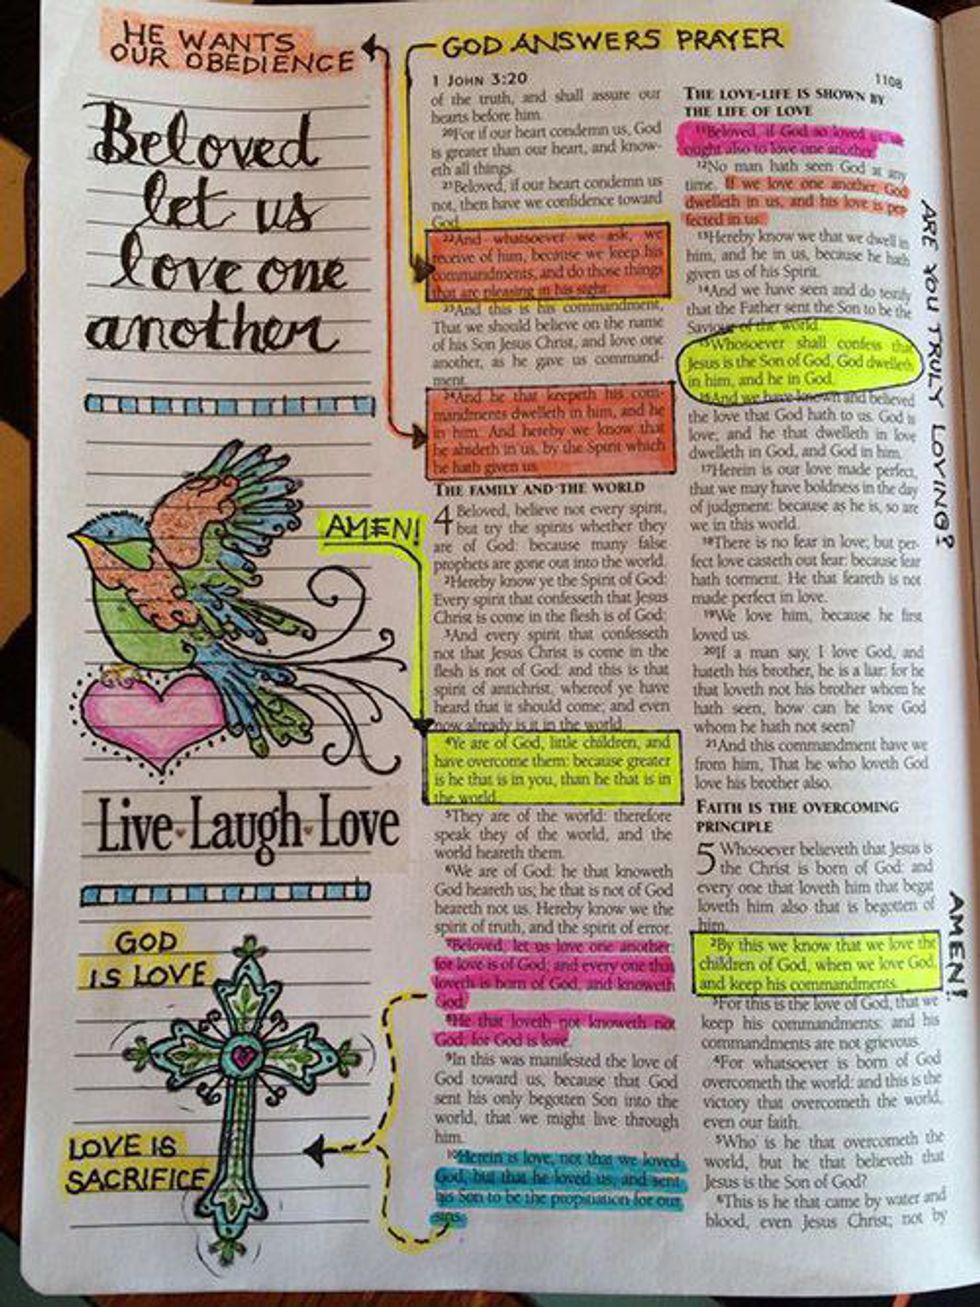 HE WANTS
OUR OBEDIENCE
GOD ANSWERS PRAYER
Beloved
let us
love one
another
AMEN!
Live Laugh Love
GOD
IS LOVE
LOVE IS
SACRIFICE
1 JOHN 3:20
of the truth, and shall assure our
hearts before him.
20For if our heart condemn us, God
is greater than our heart, and know-
eth all things.
21Beloved, if our heart condemn us
not, then have we confidence toward
God.
22And whatsoever we ask, we
receive of him, because we keep his
commandments, and do those things
that are pleasing in his sight.
23And this is his commandment,
That we should believe on the name
of his Son Jesus Christ, and love one
another, as he gave us command-
ment.
24And he that keepeth his com-
mandments dwelleth in him, and he
in him. And hereby we know that
he abideth in us, by the Spirit which
he hath given us.
THE FAMILY AND THE WORLD
4 Beloved, believe not every spirit,
but try the spirits whether they
are of God: because many false
prophets are gone out into the world.
2Hereby know ye the Spirit of God:
Every spirit that confesseth that Jesus
Christ is come in the flesh is of God:
3And every spirit that confesseth
not that Jesus Christ is come in the
flesh is not of God: and this is that
spirit of antichrist, whereof ye have
heard that it should come; and even
now already is it in the world.
4Ye are of God, little children, and
have overcome them: because greater
is he that is in you, than he that is in
the world.
5They are of the world: therefore
speak they of the world, and the
world heareth them.
6We are of God: he that knoweth
God heareth us; he that is not of God
heareth not us. Hereby know we the
spirit of truth, and the spirit of error.
7Beloved, let us love one another:
for love is of God; and every one that
loveth is born of God, and knoweth
God.
8He that loveth not knoweth not
God; for God is love.
9In this was manifested the love of
God toward us, because that God
sent his only begotten Son into the
world, that we might live through
him.
10Herein is love, not that we loved
God, but that he loved us, and sent
his Son to be the propitiation for our
sins.
1108
THE LOVE-LIFE IS SHOWN BY
THE LIFE OF LOVE
11Beloved, if God so loved us, we
ought also to love one another.
12No man hath seen God at any
time. If we love one another, God
dwelleth in us, and his love is per-
fected in us.
13Hereby know we that we dwell in
him, and he in us, because he hath
given us of his Spirit.
14And we have seen and do testify
that the Father sent the Son to be the
Saviour of the world.
15Whosoever shall confess that
Jesus is the Son of God, God dwelleth
in him, and he in God.
16And we have known and believed
the love that God hath to us. God is
love; and he that dwelleth in love
dwelleth in God, and God in him.
17Herein is our love made perfect,
that we may have boldness in the day
of judgment: because as he is, so are
we in this world.
18There is no fear in love; but per-
fect love casteth out fear: because fear
hath torment. He that feareth is not
made perfect in love.
19We love him, because he first
loved us.
20If a man say, I love God, and
hateth his brother, he is a liar: for he
that loveth not his brother whom he
hath seen, how can he love God
whom he hath not seen?
21And this commandment have we
from him, That he who loveth God
love his brother also.
FAITH IS THE OVERCOMING
PRINCIPLE
5 Whosoever believeth that Jesus is
the Christ is born of God: and
every one that loveth him that begat
loveth him also that is begotten of
him.
2By this we know that we love the
children of God, when we love God,
and keep his commandments.
3For this is the love of God, that we
keep his commandments: and his
commandments are not grievous.
4For whatsoever is born of God
overcometh the world: and this is the
victory that overcometh the world,
even our faith.
5Who is he that overcometh the
world, but he that believeth that
Jesus is the Son of God?
6This is he that came by water and
blood, even Jesus Christ; not by
ARE YOU TRULY LOVING?
AMEN!